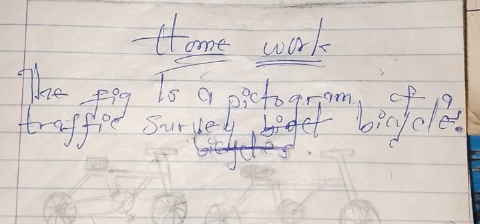 Home work
The fig Is a pictogram of a
traffic survey bicycle.
bicycles.